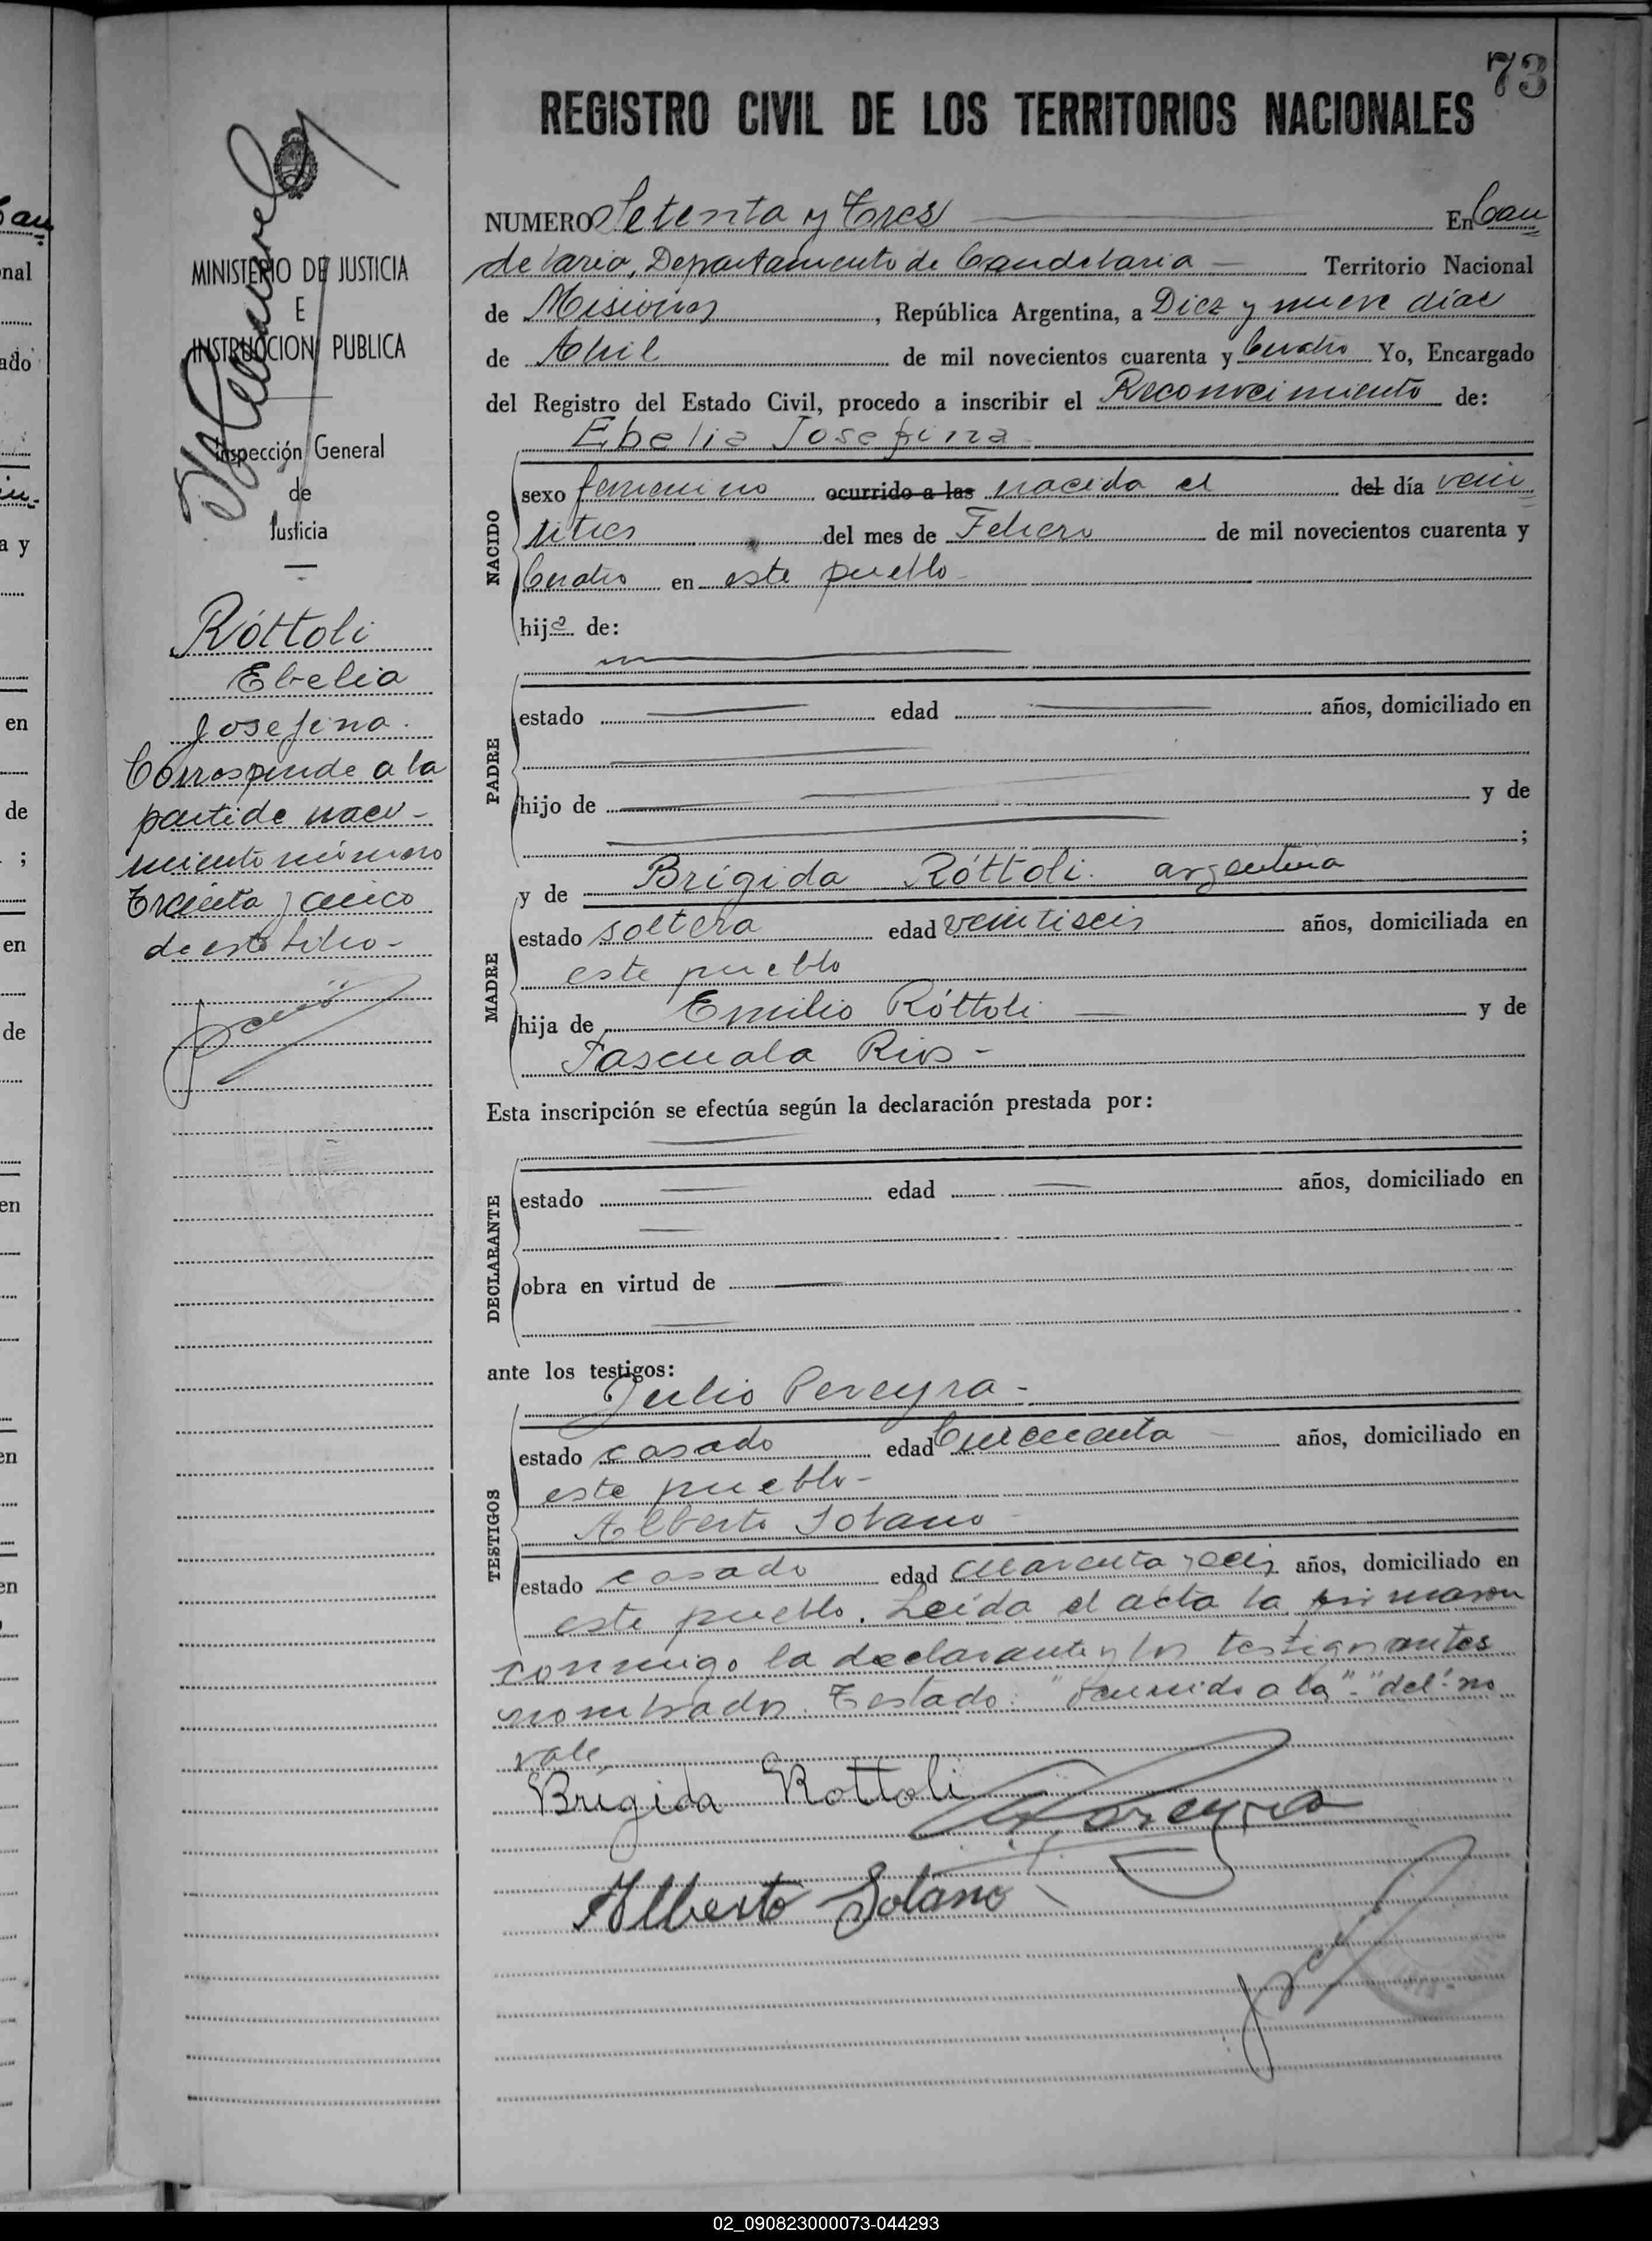 73
REGISTRO CIVIL DE LOS TERRITORIOS NACIONALES
NUMERO Setenta y Tres En Can
delaria, Departamento de Candelaria Territorio Nacional
de Misiones, República Argentina, a Diez y nueve días
de Abril de mil novecientos cuarenta y Cuatro Yo, Encargado
del Registro del Estado Civil, procedo a inscribir el Reconocimiento de:
Ebelia Josefina
NACIDO
sexo femenino ocurrido a las nacida el del día vein
titres del mes de Febrero de mil novecientos cuarenta y
Cuatro en este pueblo
hija de:
PADRE
estado edad años, domiciliado en
hijo de y de
;
y de Brígida Róttoli. argentina
MADRE
estado soltera edad veintiseis años, domiciliada en
este pueblo
hija de Emilio Róttoli y de
Pascuala Rios -
Esta inscripción se efectúa según la declaración prestada por:
DECLARANTE
estado edad años, domiciliado en
obra en virtud de
ante los testigos:
Julio Pereyra -
TESTIGOS
estado casado edad Cincuenta años, domiciliado en
este pueblo -
Alberto Solano
estado casado edad cuarenta y seis años, domiciliado en
este pueblo. Leída el acta la firmaron
conmigo la declarante y los testigos antes
nombrados. Testado: "Ocurrido a la" - "del" - no
vale
Brígida Rottoli
Pereyra
Alberto Solano
MINISTERIO DE JUSTICIA
E
INSTRUCCION PUBLICA
Inspección General
de
Justicia
Róttoli
Ebelia
Josefina.
Corresponde a la
partida naci-
miento número
Treinta y cinco
de este Libro -
Can
nal
ado
a y
en
de
;
en
de
en
en
en
02_090823000073-044293